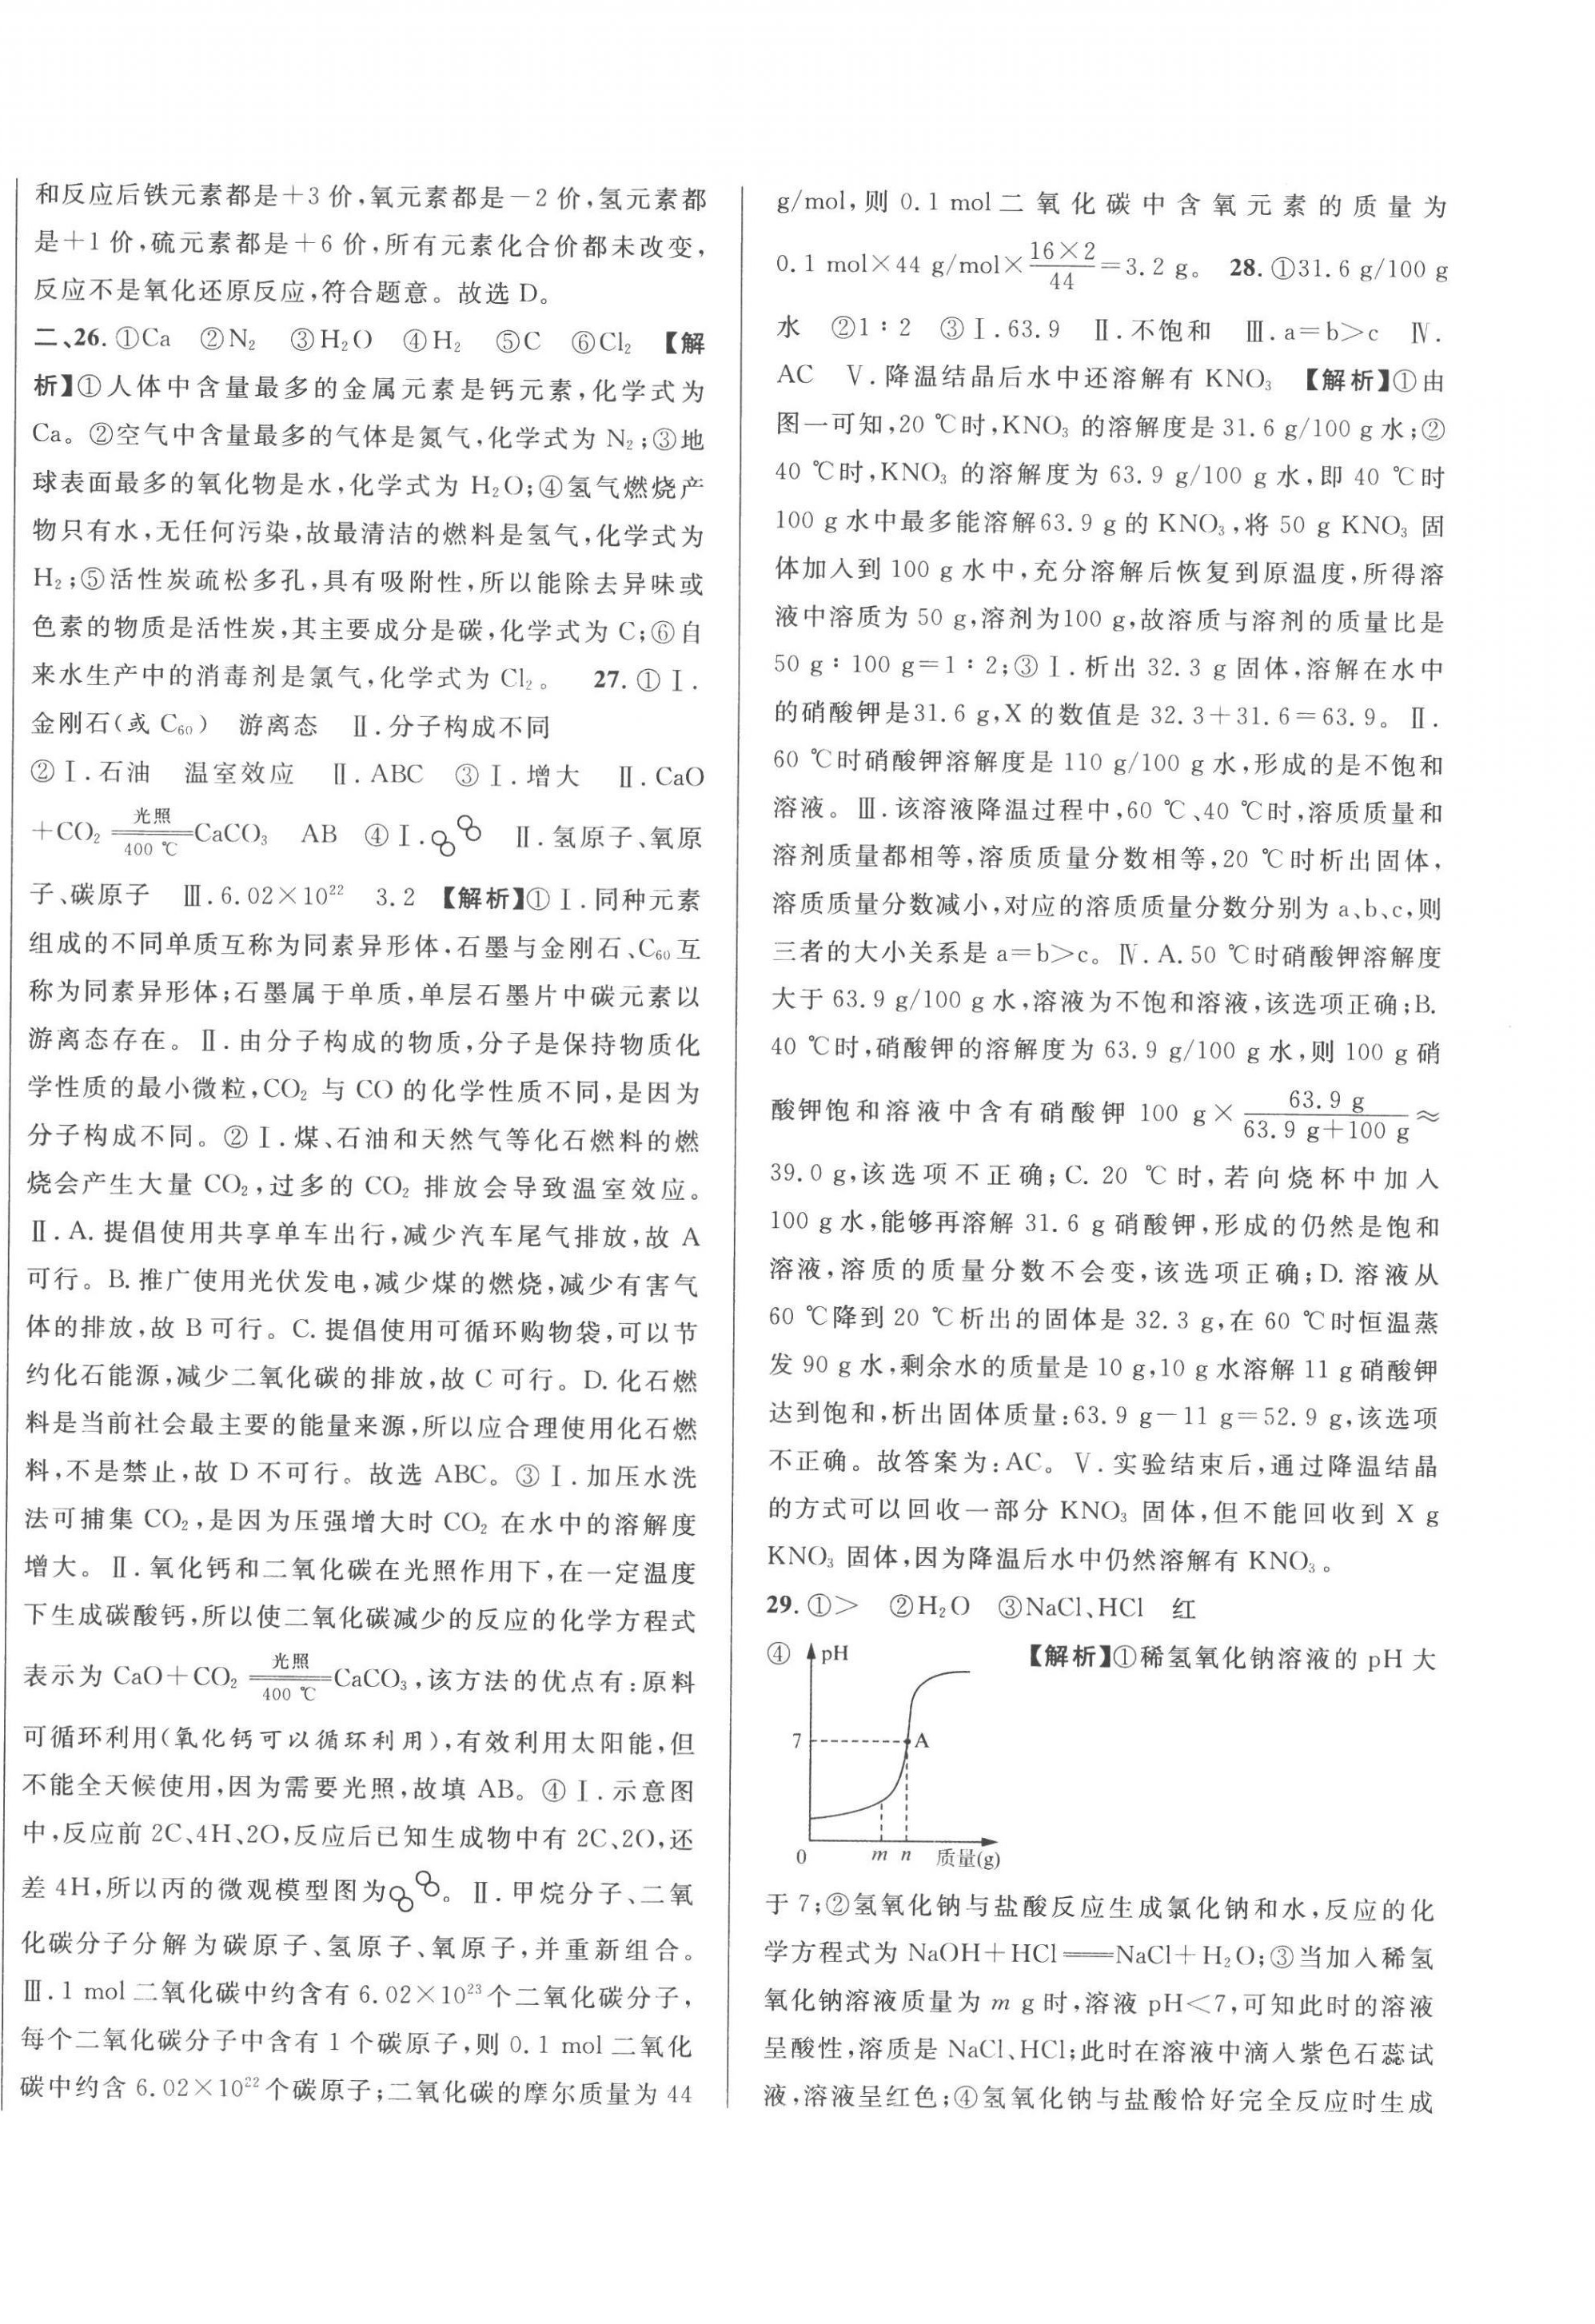 和反应后铁元素都是＋3 价,氧元素都是－2 价,氢元素都
是＋1 价,硫元素都是＋6 价,所有元素化合价都未改变,
反应不是氧化还原反应,符合题意。故选 D。
二、26. ①Ca ②N₂ ③H₂O ④H₂ ⑤C ⑥Cl₂ 【解
析】①人体中含量最多的金属元素是钙元素,化学式为
Ca。②空气中含量最多的气体是氮气,化学式为 N₂;③地
球表面最多的氧化物是水,化学式为 H₂O;④氢气燃烧产
物只有水,无任何污染,故最清洁的燃料是氢气,化学式为
H₂;⑤活性炭疏松多孔,具有吸附性,所以能除去异味或
色素的物质是活性炭,其主要成分是碳,化学式为 C;⑥自
来水生产中的消毒剂是氯气,化学式为 Cl₂。 27. ①Ⅰ.
金刚石(或 C₆₀) 游离态 Ⅱ.分子构成不同
②Ⅰ.石油 温室效应 Ⅱ. ABC ③Ⅰ.增大 Ⅱ. CaO
＋CO₂ 光照 ═ 400 ℃ CaCO₃ AB ④Ⅰ. Ⅱ.氢原子、氧原
子、碳原子 Ⅲ. 6.02×10²² 3.2 【解析】①Ⅰ.同种元素
组成的不同单质互称为同素异形体,石墨与金刚石、C₆₀互
称为同素异形体;石墨属于单质,单层石墨片中碳元素以
游离态存在。Ⅱ.由分子构成的物质,分子是保持物质化
学性质的最小微粒,CO₂ 与 CO 的化学性质不同,是因为
分子构成不同。②Ⅰ.煤、石油和天然气等化石燃料的燃
烧会产生大量 CO₂,过多的 CO₂ 排放会导致温室效应。
Ⅱ. A. 提倡使用共享单车出行,减少汽车尾气排放,故 A
可行。B. 推广使用光伏发电,减少煤的燃烧,减少有害气
体的排放,故 B 可行。C. 提倡使用可循环购物袋,可以节
约化石能源,减少二氧化碳的排放,故 C 可行。D. 化石燃
料是当前社会最主要的能量来源,所以应合理使用化石燃
料,不是禁止,故 D 不可行。故选 ABC。③Ⅰ.加压水洗
法可捕集 CO₂,是因为压强增大时 CO₂ 在水中的溶解度
增大。Ⅱ.氧化钙和二氧化碳在光照作用下,在一定温度
下生成碳酸钙,所以使二氧化碳减少的反应的化学方程式
表示为 CaO＋CO₂ 光照 ═ 400 ℃ CaCO₃,该方法的优点有:原料
可循环利用(氧化钙可以循环利用),有效利用太阳能,但
不能全天候使用,因为需要光照,故填 AB。④Ⅰ.示意图
中,反应前 2C、4H、2O,反应后已知生成物中有 2C、2O,还
差 4H,所以丙的微观模型图为 。Ⅱ.甲烷分子、二氧
化碳分子分解为碳原子、氢原子、氧原子,并重新组合。
Ⅲ. 1 mol 二氧化碳中约含有 6.02×10²³个二氧化碳分子,
每个二氧化碳分子中含有 1 个碳原子,则 0.1 mol 二氧化
碳中约含 6.02×10²²个碳原子;二氧化碳的摩尔质量为 44
g/mol,则 0.1 mol 二氧化碳中含氧元素的质量为
0.1 mol×44 g/mol×16×2/44＝3.2 g。 28. ①31.6 g/100 g
水 ②1∶2 ③Ⅰ. 63.9 Ⅱ.不饱和 Ⅲ. a＝b＞c Ⅳ.
AC Ⅴ.降温结晶后水中还溶解有 KNO₃ 【解析】①由
图一可知,20 ℃时,KNO₃ 的溶解度是 31.6 g/100 g 水;②
40 ℃时,KNO₃ 的溶解度为 63.9 g/100 g 水,即 40 ℃时
100 g 水中最多能溶解63.9 g 的 KNO₃,将 50 g KNO₃ 固
体加入到 100 g 水中,充分溶解后恢复到原温度,所得溶
液中溶质为 50 g,溶剂为100 g,故溶质与溶剂的质量比是
50 g∶100 g＝1∶2;③Ⅰ.析出 32.3 g 固体,溶解在水中
的硝酸钾是31.6 g,X 的数值是 32.3＋31.6＝63.9。Ⅱ.
60 ℃时硝酸钾溶解度是 110 g/100 g 水,形成的是不饱和
溶液。Ⅲ.该溶液降温过程中,60 ℃、40 ℃时,溶质质量和
溶剂质量都相等,溶质质量分数相等,20 ℃时析出固体,
溶质质量分数减小,对应的溶质质量分数分别为 a、b、c,则
三者的大小关系是 a＝b＞c。Ⅳ. A. 50 ℃时硝酸钾溶解度
大于 63.9 g/100 g 水,溶液为不饱和溶液,该选项正确;B.
40 ℃时,硝酸钾的溶解度为 63.9 g/100 g 水,则 100 g 硝
酸钾饱和溶液中含有硝酸钾 100 g×63.9 g/(63.9 g＋100 g)≈
39.0 g,该选项不正确;C. 20 ℃时,若向烧杯中加入
100 g 水,能够再溶解 31.6 g 硝酸钾,形成的仍然是饱和
溶液,溶质的质量分数不会变,该选项正确;D. 溶液从
60 ℃降到 20 ℃析出的固体是 32.3 g,在 60 ℃时恒温蒸
发 90 g 水,剩余水的质量是 10 g,10 g 水溶解 11 g 硝酸钾
达到饱和,析出固体质量:63.9 g－11 g＝52.9 g,该选项
不正确。故答案为:AC。Ⅴ.实验结束后,通过降温结晶
的方式可以回收一部分 KNO₃ 固体,但不能回收到 X g
KNO₃ 固体,因为降温后水中仍然溶解有 KNO₃。
29. ①＞ ②H₂O ③NaCl、HCl 红
④ pH 【解析】①稀氢氧化钠溶液的 pH 大
7 A
0 m n 质量(g)
于 7;②氢氧化钠与盐酸反应生成氯化钠和水,反应的化
学方程式为 NaOH＋HCl══NaCl＋H₂O;③当加入稀氢
氧化钠溶液质量为 m g 时,溶液 pH＜7,可知此时的溶液
呈酸性,溶质是 NaCl、HCl;此时在溶液中滴入紫色石蕊试
液,溶液呈红色;④氢氧化钠与盐酸恰好完全反应时生成